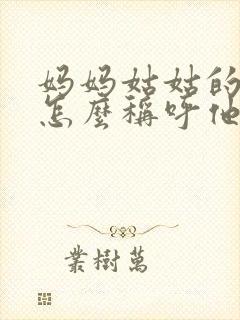 妈妈姑姑的
怎麼稱呼他
業樹萬